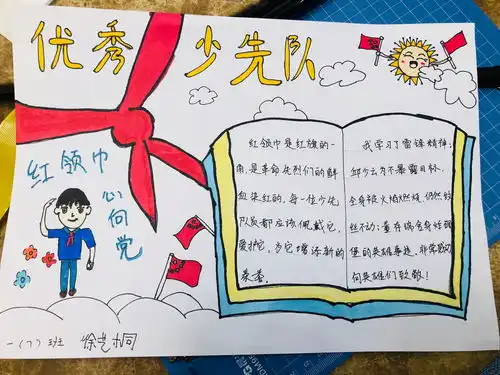 优秀少先队
红领巾
心向党
红领巾是红旗的一
角,是革命先烈们的鲜
血染红的,每一位少先
队员都应该佩戴它,
爱护它,为它增添新的
荣誉。
我学习了雷锋精神;
邱少云为不暴露目标,
全身被火焰燃烧,仍然纹
丝不动;董存瑞舍身炸碉
堡的英雄事迹。非常感动
向英雄们致敬!
一(7)班 徐艺桐